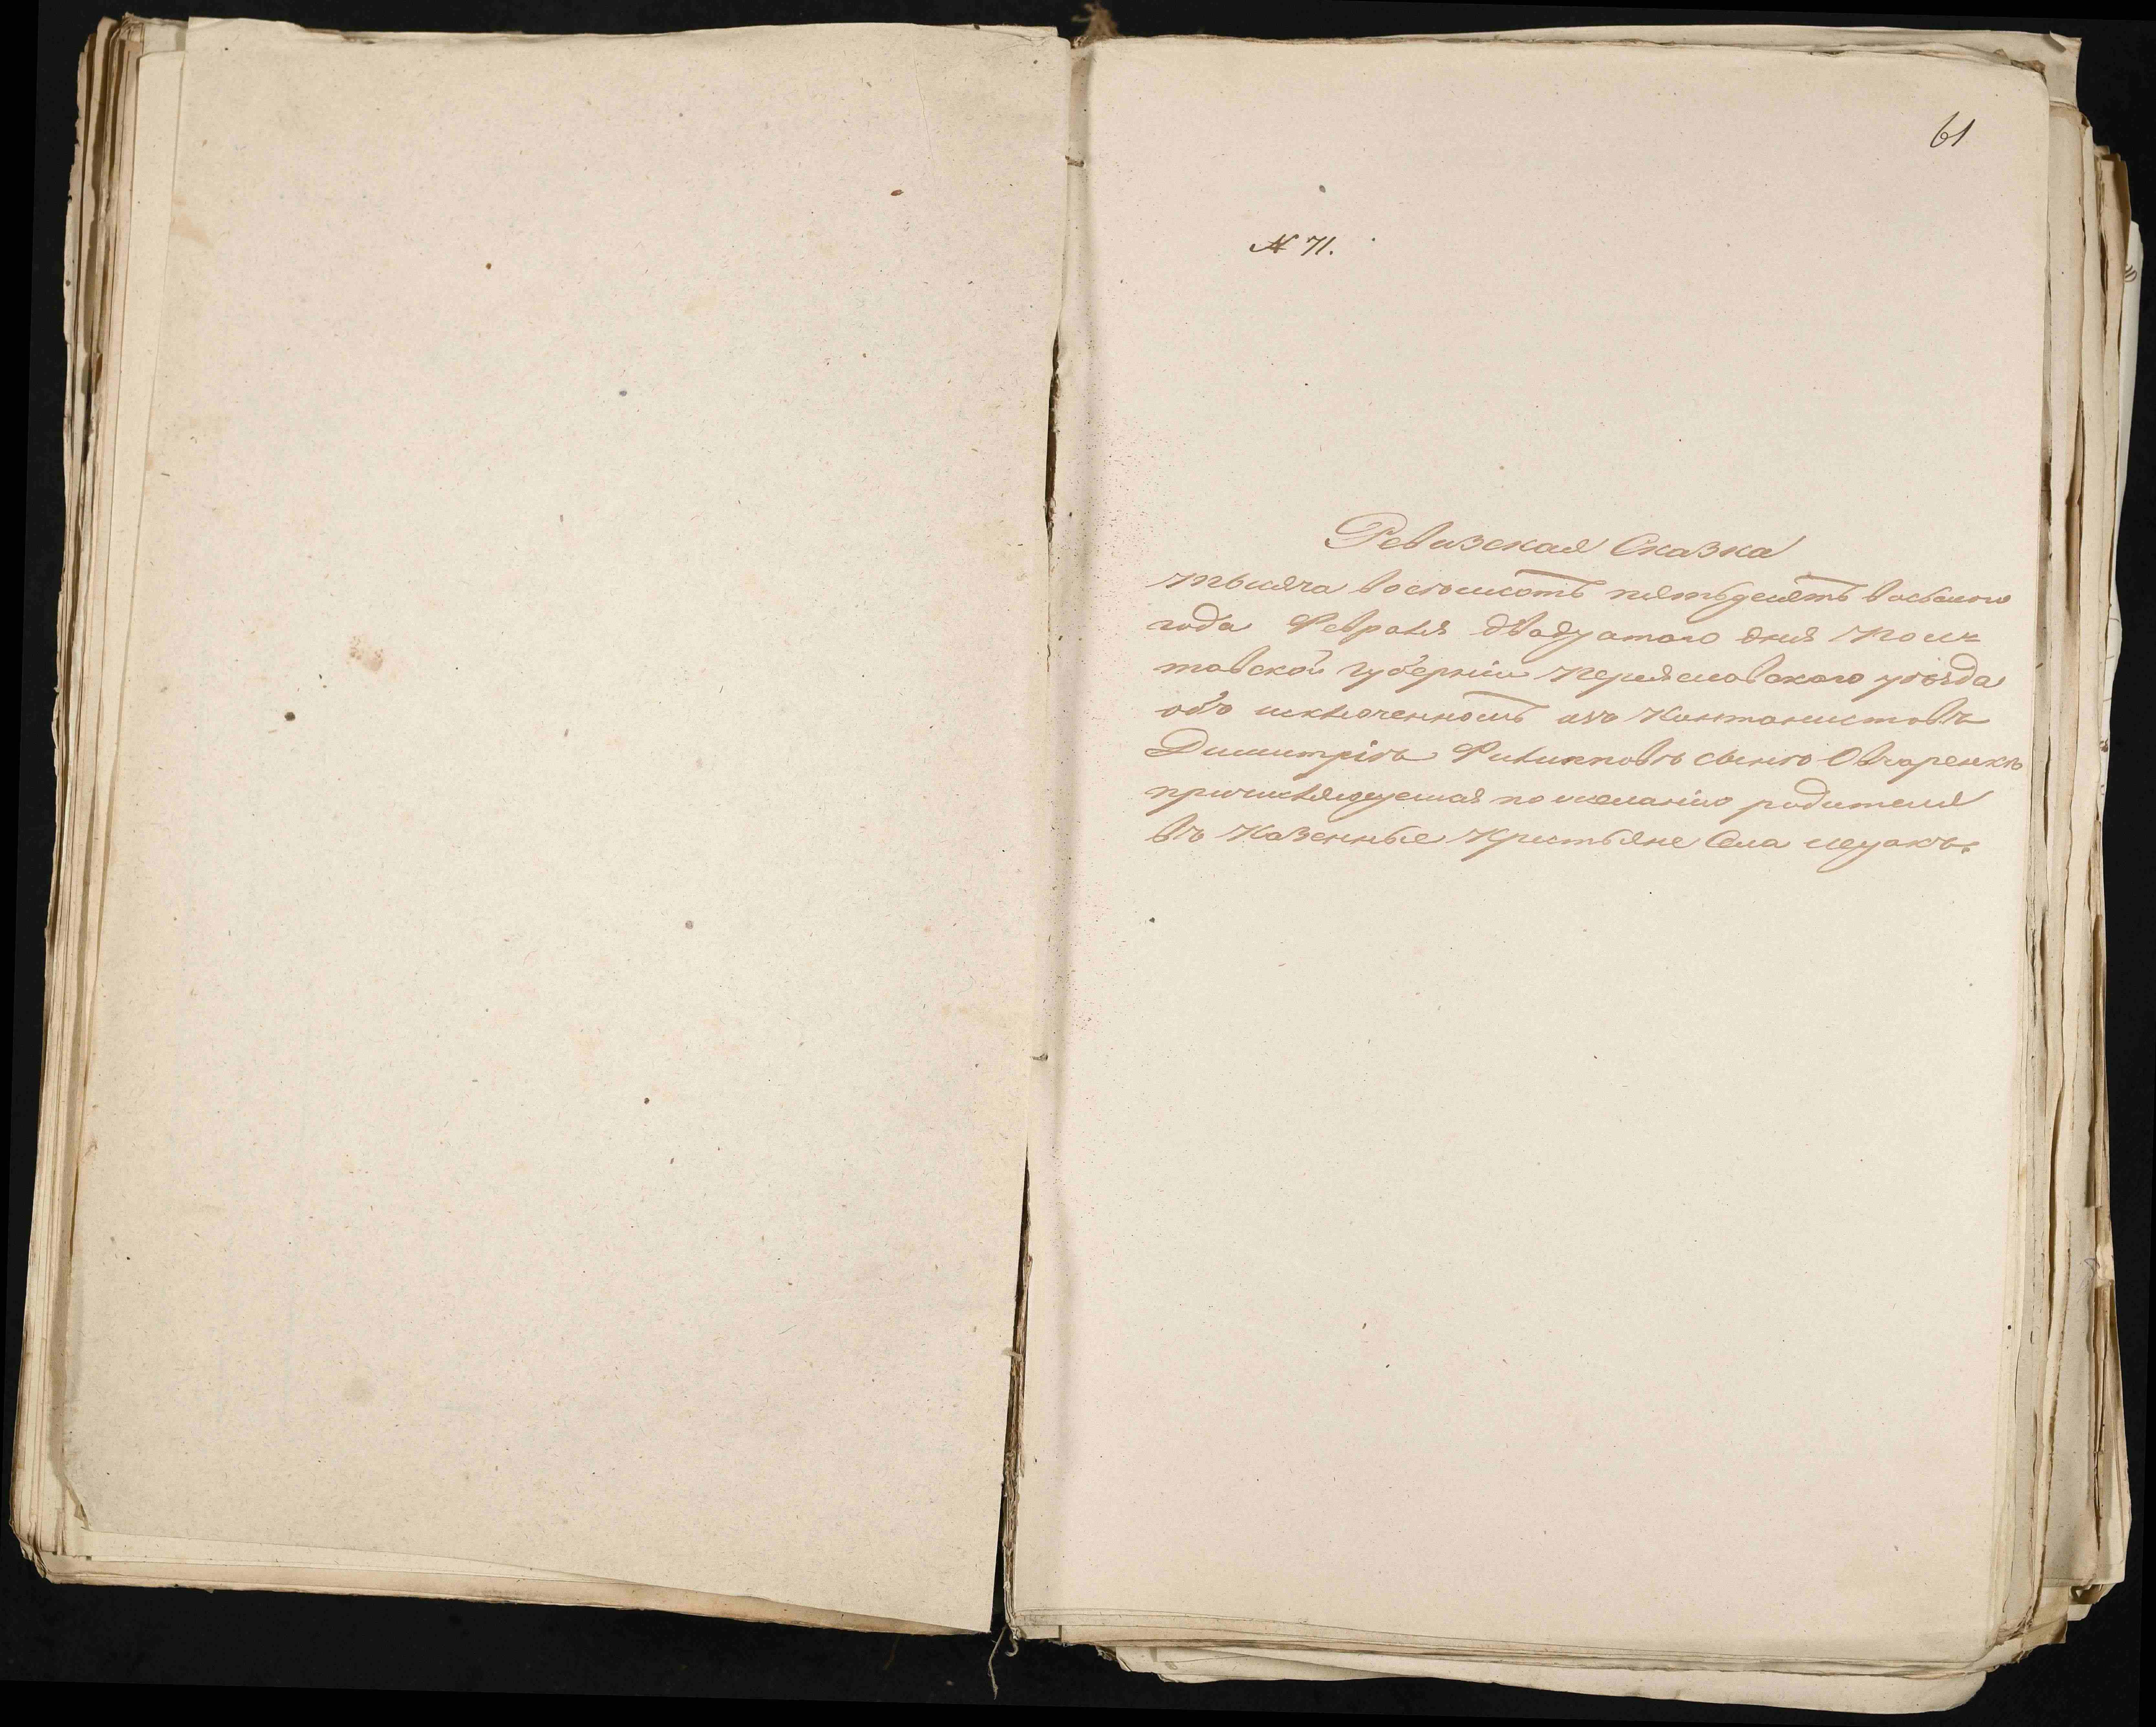 61
№ 71.
Ревизская Сказка
тысяча восемьсотъ пятьдесятъ восьмого
года Февраля двадцатого дня Пол=
тавской губерніи Переяславского уѣзда
объ исключенномъ изъ Кантонистовъ
Димитрію Филипповъ сынъ Овчаренкѣ
причисляющемся по желанію родителя
въ Казенные Крестьяне Села